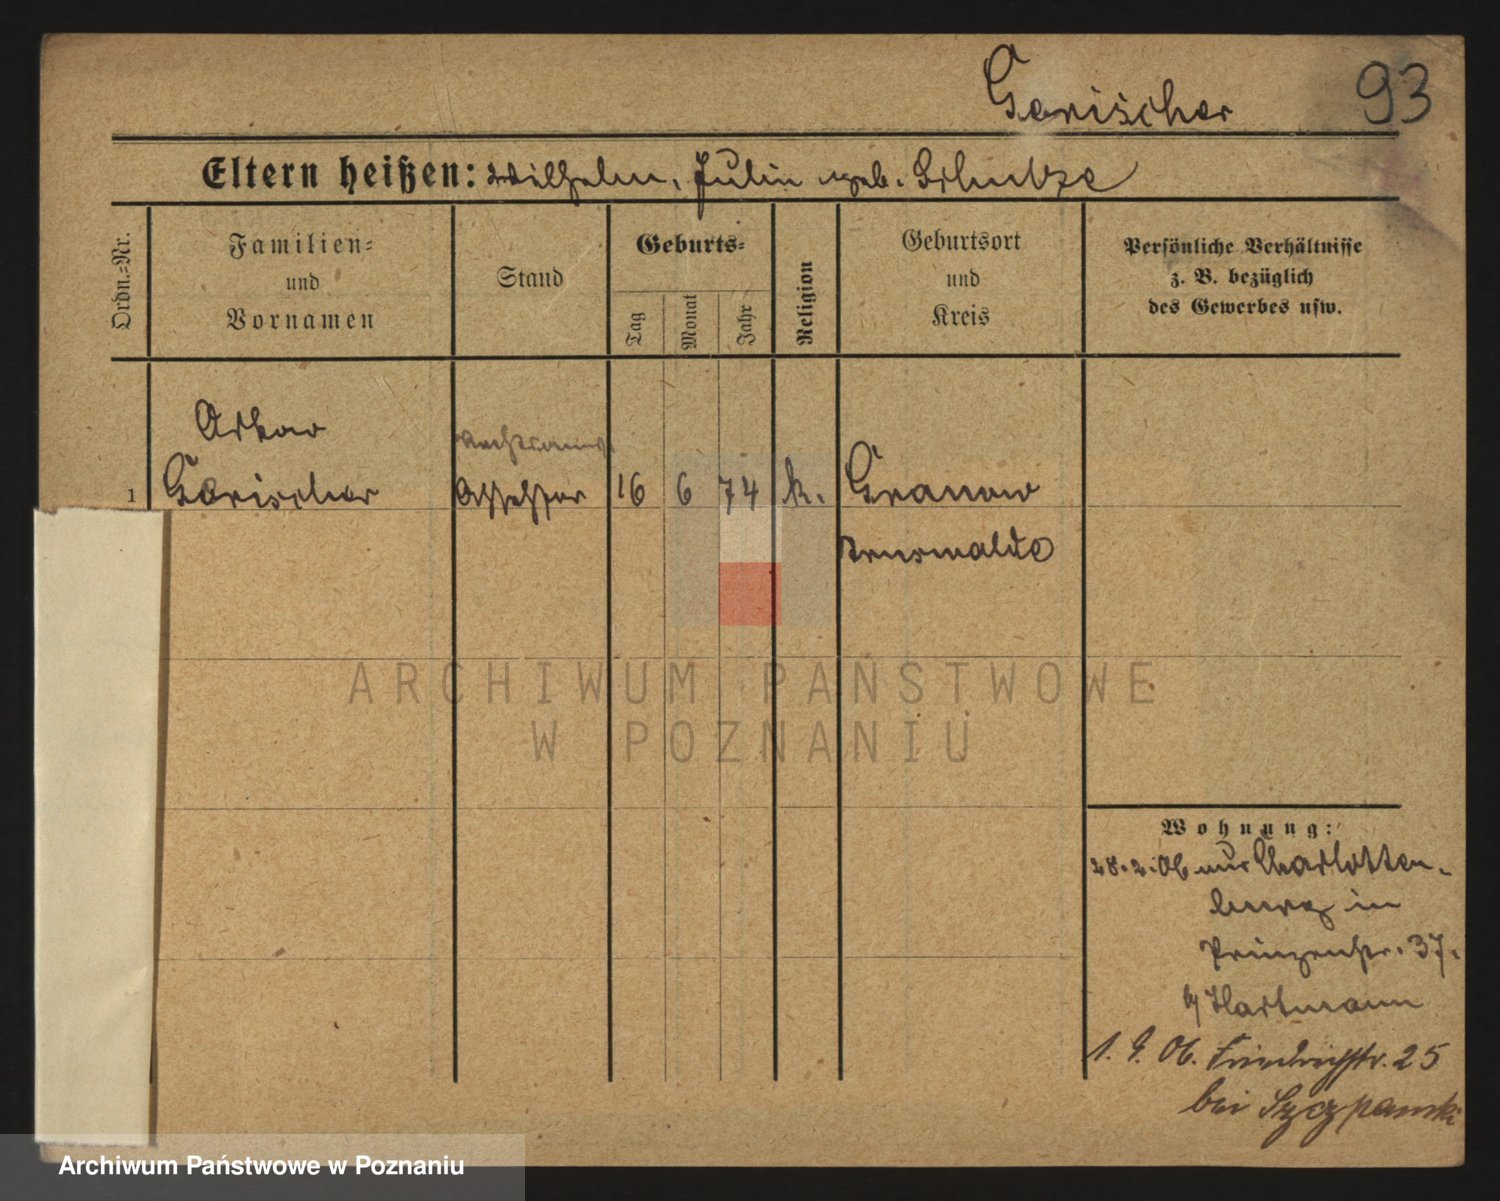 Gerischer 93
Eltern heißen: Wilhelm, Julie geb. Schulze
Ordn.-Nr.
Familien-
und
Vornamen
Stand
Geburts-
Tag
Monat
Jahr
Religion
Geburtsort
und
Kreis
Persönliche Verhältnisse
z. B. bezüglich
des Gewerbes usw.
Oskar
Rechtsanw.
1 Gerischer Assessor 16 6 74 k. Granow
Arnswalde
ARCHIWUM PAŃSTWOWE
W POZNANIU
Wohnung:
28.2.06 aus Charlotten-
burg in
Prinzenstr. 37.
b/ Hartmann
1. 9. 06. Friedrichstr. 25
bei Szczepanski
Archiwum Państwowe w Poznaniu